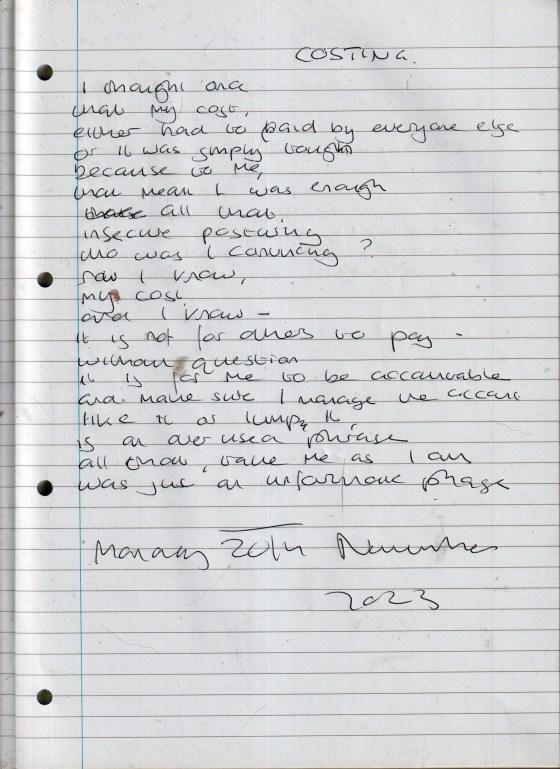 COSTING.
I thought once
that my cost,
either had to paid by everyone else
or it was simply tough
because to me,
that mean I was enough
all that,
insecure posturing
who was I convincing ?
now I know,
my cost
and I know -
it is not for others to pay -
without question
it is for me to be accountable
and make sure I manage the account
like it or lump it,
is an over used phrase
all that, take me as I am
was just an unfortunate phase
Monday 20th November
2023